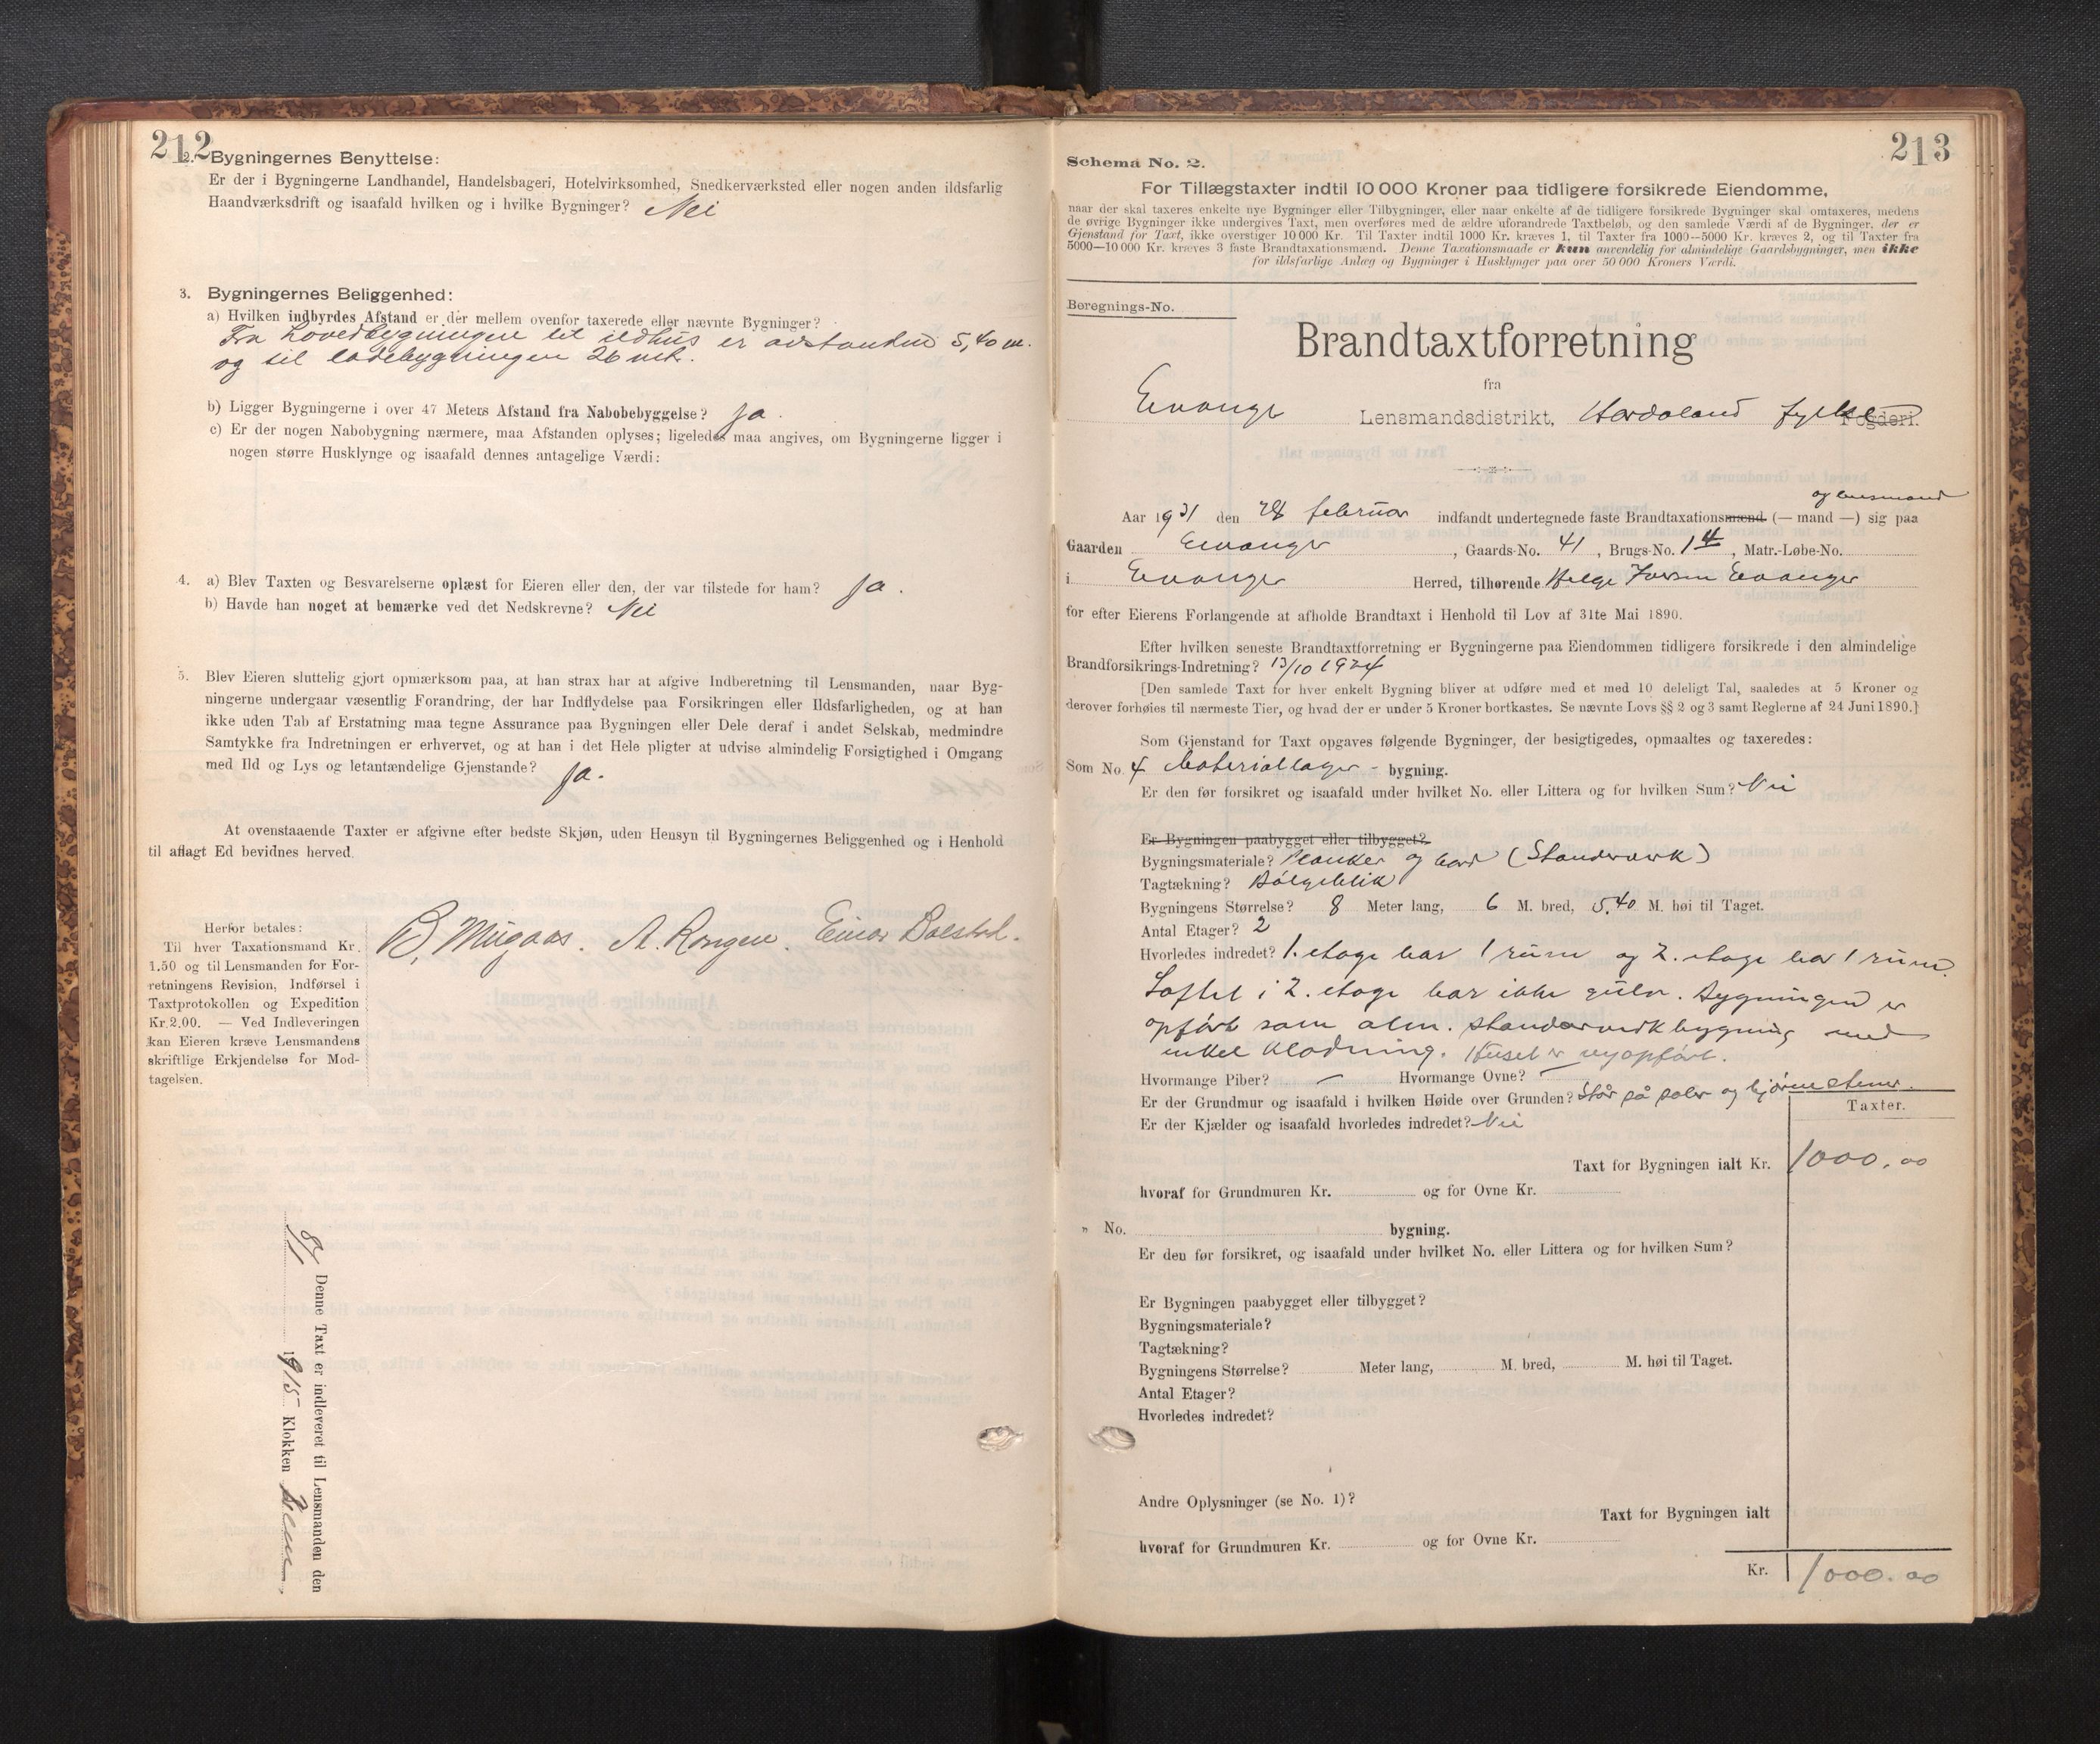 212
2. Bygningernes Benyttelse:
Er der i Bygningerne Landhandel, Handelsbageri, Hotelvirksomhed, Snedkerværksted eller nogen anden ildsfarlig
Haandværksdrift og isaafald hvilken og i hvilke Bygninger? Nei
3. Bygningernes Beliggenhed:
a) Hvilken indbyrdes Afstand er der mellem ovenfor taxerede eller nævnte Bygninger?
Fra hovedbygningen til ildhus er avstanden 5,40 m.
og til ladebygningen 26 mtr.
b) Ligger Bygningerne i over 47 Meters Afstand fra Nabobebyggelse? Ja.
c) Er der nogen Nabobygning nærmere, maa Afstanden oplyses; ligeledes maa angives, om Bygningerne ligger i
nogen større Husklynge og isaafald dennes antagelige Værdi:
4. a) Blev Taxten og Besvarelserne oplæst for Eieren eller den, der var tilstede for ham? Ja.
b) Havde han noget at bemærke ved det Nedskrevne? Nei
5. Blev Eieren sluttelig gjort opmærksom paa, at han strax har at afgive Indberetning til Lensmanden, naar Byg-
ningerne undergaar væsentlig Forandring, der har Indflydelse paa Forsikringen eller Ildsfarligheden, og at han
ikke uden Tab af Erstatning maa tegne Assurance paa Bygningen eller Dele deraf i andet Selskab, medmindre
Samtykke fra Indretningen er erhvervet, og at han i det Hele pligter at udvise almindelig Forsigtighed i Omgang
med Ild og Lys og letantændelige Gjenstande? Ja.
At ovenstaaende Taxter er afgivne efter bedste Skjøn, uden Hensyn til Bygningernes Beliggenhed og i Henhold
til aflagt Ed bevidnes herved.
B. Mugaas. A. Rongen. Einar Bolstad.
Herfor betales:
Til hver Taxationsmand Kr.
1.50 og til Lensmanden for For-
retningens Revision, Indførsel i
Taxtprotokollen og Expedition
Kr. 2.00. — Ved Indleveringen
kan Eieren kræve Lensmandens
skriftlige Erkjendelse for Mod-
tagelsen.
Denne Taxt er indleveret til Lensmanden den
1915 Klokken
213
Schema No. 2.
For Tillægstaxter indtil 10 000 Kroner paa tidligere forsikrede Eiendomme,
naar der skal taxeres enkelte nye Bygninger eller Tilbygninger, eller naar enkelte af de tidligere forsikrede Bygninger skal omtaxeres, medens
de øvrige Bygninger ikke undergives Taxt, men overføres med de ældre uforandrede Taxtbeløb, og den samlede Værdi af de Bygninger, der er
Gjenstand for Taxt, ikke overstiger 10 000 Kr. Til Taxter indtil 1000 Kr. kræves 1, til Taxter fra 1000—5000 Kr. kræves 2, og til Taxter fra
5000—10 000 Kr. kræves 3 faste Brandtaxationsmænd. Denne Taxationsmaade er kun anvendelig for almindelige Gaardsbygninger, men ikke
for ildsfarlige Anlæg og Bygninger i Husklynger paa over 50 000 Kroners Værdi.
Beregnings-No.
Brandtaxtforretning
fra
Evanger Lensmandsdistrikt, Hordaland fylke Fogderi.
og lensmand
Aar 1931 den 28 februar indfandt undertegnede faste Brandtaxationsmænd (— mand —) sig paa
Gaarden Evanger, Gaards-No. 41, Brugs-No. 14, Matr.-Løbe-No.
i Evanger Herred, tilhørende Helge Iversen Evanger
for efter Eierens Forlangende at afholde Brandtaxt i Henhold til Lov af 31te Mai 1890.
Efter hvilken seneste Brandtaxtforretning er Bygningerne paa Eiendommen tidligere forsikrede i den almindelige
Brandforsikrings-Indretning? 13/10 1924
[Den samlede Taxt for hver enkelt Bygning bliver at udføre med et med 10 deleligt Tal, saaledes at 5 Kroner og
derover forhøies til nærmeste Tier, og hvad der er under 5 Kroner bortkastes. Se nævnte Lovs §§ 2 og 3 samt Reglerne af 24 Juni 1890.]
Som Gjenstand for Taxt opgaves følgende Bygninger, der besigtigedes, opmaaltes og taxeredes:
Som No. 4 Materiallager - bygning.
Er den før forsikret og isaafald under hvilket No. eller Littera og for hvilken Sum? Nei
Er Bygningen paabygget eller tilbygget?
Bygningsmateriale? Planker og bord (Standverk)
Tagtækning? Bølgeblik
Bygningens Størrelse? 8 Meter lang, 6 M. bred, 5,40 M. høi til Taget.
Antal Etager? 2
Hvorledes indredet? 1. etage har 1 rum og 2. etage har 1 rum.
Loftet i 2. etage har ikke gulv. Bygningen er
opført som alm. standerverkbygning med
enkel kledning. Huset er nyopført.
Hvormange Piber? — Hvormange Ovne? —
Er der Grundmur og isaafald i hvilken Høide over Grunden? Står på påler og hjørnestener.
Er der Kjælder og isaafald hvorledes indredet? Nei
Taxter.
Taxt for Bygningen ialt Kr. 1000,00
hvoraf for Grundmuren Kr. og for Ovne Kr.
" No. bygning.
Er den før forsikret, og isaafald under hvilket No. eller Littera og for hvilken Sum?
Er Bygningen paabygget eller tilbygget?
Bygningsmateriale?
Tagtækning?
Bygningens Størrelse? Meter lang, M. bred, M. høi til Taget.
Antal Etager?
Hvorledes indredet?
Andre Oplysninger (se No. 1)?
Taxt for Bygningen ialt
hvoraf for Grundmuren Kr. og for Ovne Kr.
Kr. 1000.00